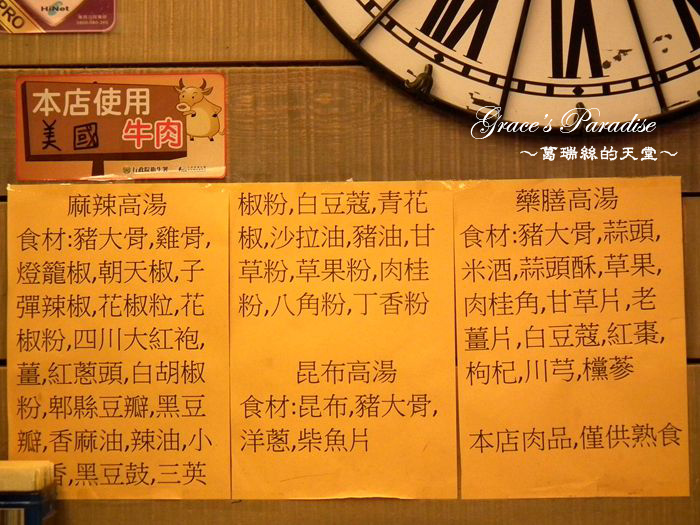 PRO
HiNet
本店使用
美國 牛肉
行政院衛生署
Grace's Paradise
～葛瑞絲的天堂～
麻辣高湯
食材:豬大骨,雞骨,
燈籠椒,朝天椒,子
彈辣椒,花椒粒,花
椒粉,四川大紅袍,
薑,紅蔥頭,白胡椒
粉,郫縣豆瓣,黑豆
瓣,香麻油,辣油,小
香,黑豆鼓,三英
椒粉,白豆蔻,青花
椒,沙拉油,豬油,甘
草粉,草果粉,肉桂
粉,八角粉,丁香粉
昆布高湯
食材:昆布,豬大骨,
洋蔥,柴魚片
藥膳高湯
食材:豬大骨,蒜頭,
米酒,蒜頭酥,草果,
肉桂角,甘草片,老
薑片,白豆蔻,紅棗,
枸杞,川芎,欓蔘
本店肉品,僅供熟食